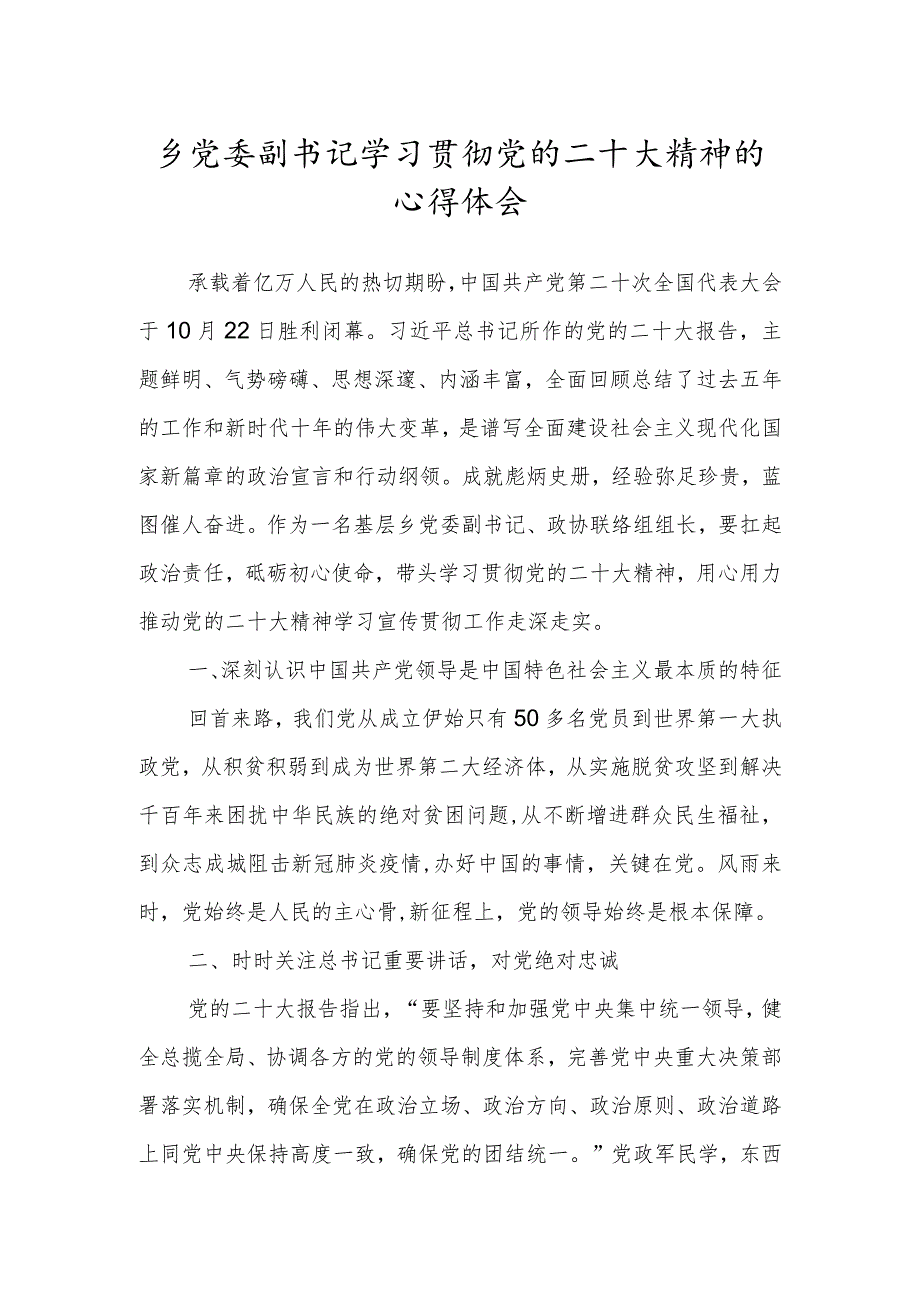 乡党委副书记学习贯彻党的二十大精神的
心得体会
承载着亿万人民的热切期盼,中国共产党第二十次全国代表大会
于10月22日胜利闭幕。习近平总书记所作的党的二十大报告，主
题鲜明、气势磅礴、思想深邃、内涵丰富，全面回顾总结了过去五年
的工作和新时代十年的伟大变革，是谱写全面建设社会主义现代化国
家新篇章的政治宣言和行动纲领。成就彪炳史册，经验弥足珍贵，蓝
图催人奋进。作为一名基层乡党委副书记、政协联络组组长，要扛起
政治责任，砥砺初心使命，带头学习贯彻党的二十大精神，用心用力
推动党的二十大精神学习宣传贯彻工作走深走实。
一、深刻认识中国共产党领导是中国特色社会主义最本质的特征
回首来路，我们党从成立伊始只有50多名党员到世界第一大执
政党，从积贫积弱到成为世界第二大经济体，从实施脱贫攻坚到解决
千百年来困扰中华民族的绝对贫困问题,从不断增进群众民生福祉，
到众志成城阻击新冠肺炎疫情,办好中国的事情，关键在党。风雨来
时，党始终是人民的主心骨,新征程上，党的领导始终是根本保障。
二、时时关注总书记重要讲话，对党绝对忠诚
党的二十大报告指出，“要坚持和加强党中央集中统一领导，健
全总揽全局、协调各方的党的领导制度体系，完善党中央重大决策部
署落实机制，确保全党在政治立场、政治方向、政治原则、政治道路
上同党中央保持高度一致，确保党的团结统一。”党政军民学，东西